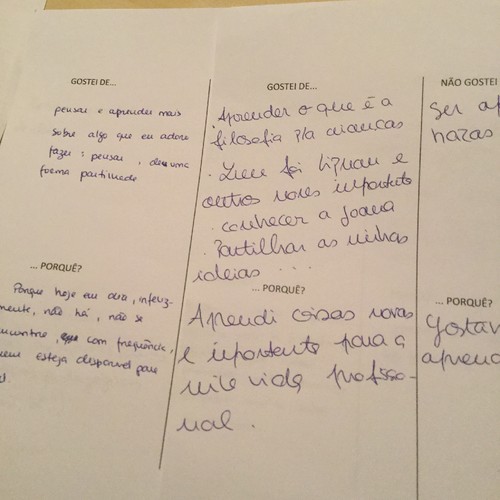 GOSTEI DE...
pensar e aprender mais
sobre algo que eu adoro
fazer: pensar, de uma
forma partilhada
... PORQUÊ?
Porque hoje em dia, infeliz-
mente, não há, não se
encontre, com frequência,
quem esteja disponível para
GOSTEI DE...
Aprender o que é a
filosofia p/a crianças
outros nomes importante
. conhecer a Joana
. Partilhar as minhas
ideias ...
... PORQUÊ?
Aprendi coisas novas
e importante para a
vida profissio
nal.
NÃO GOSTEI
Ser
horas
... PORQUÊ?
Gostar